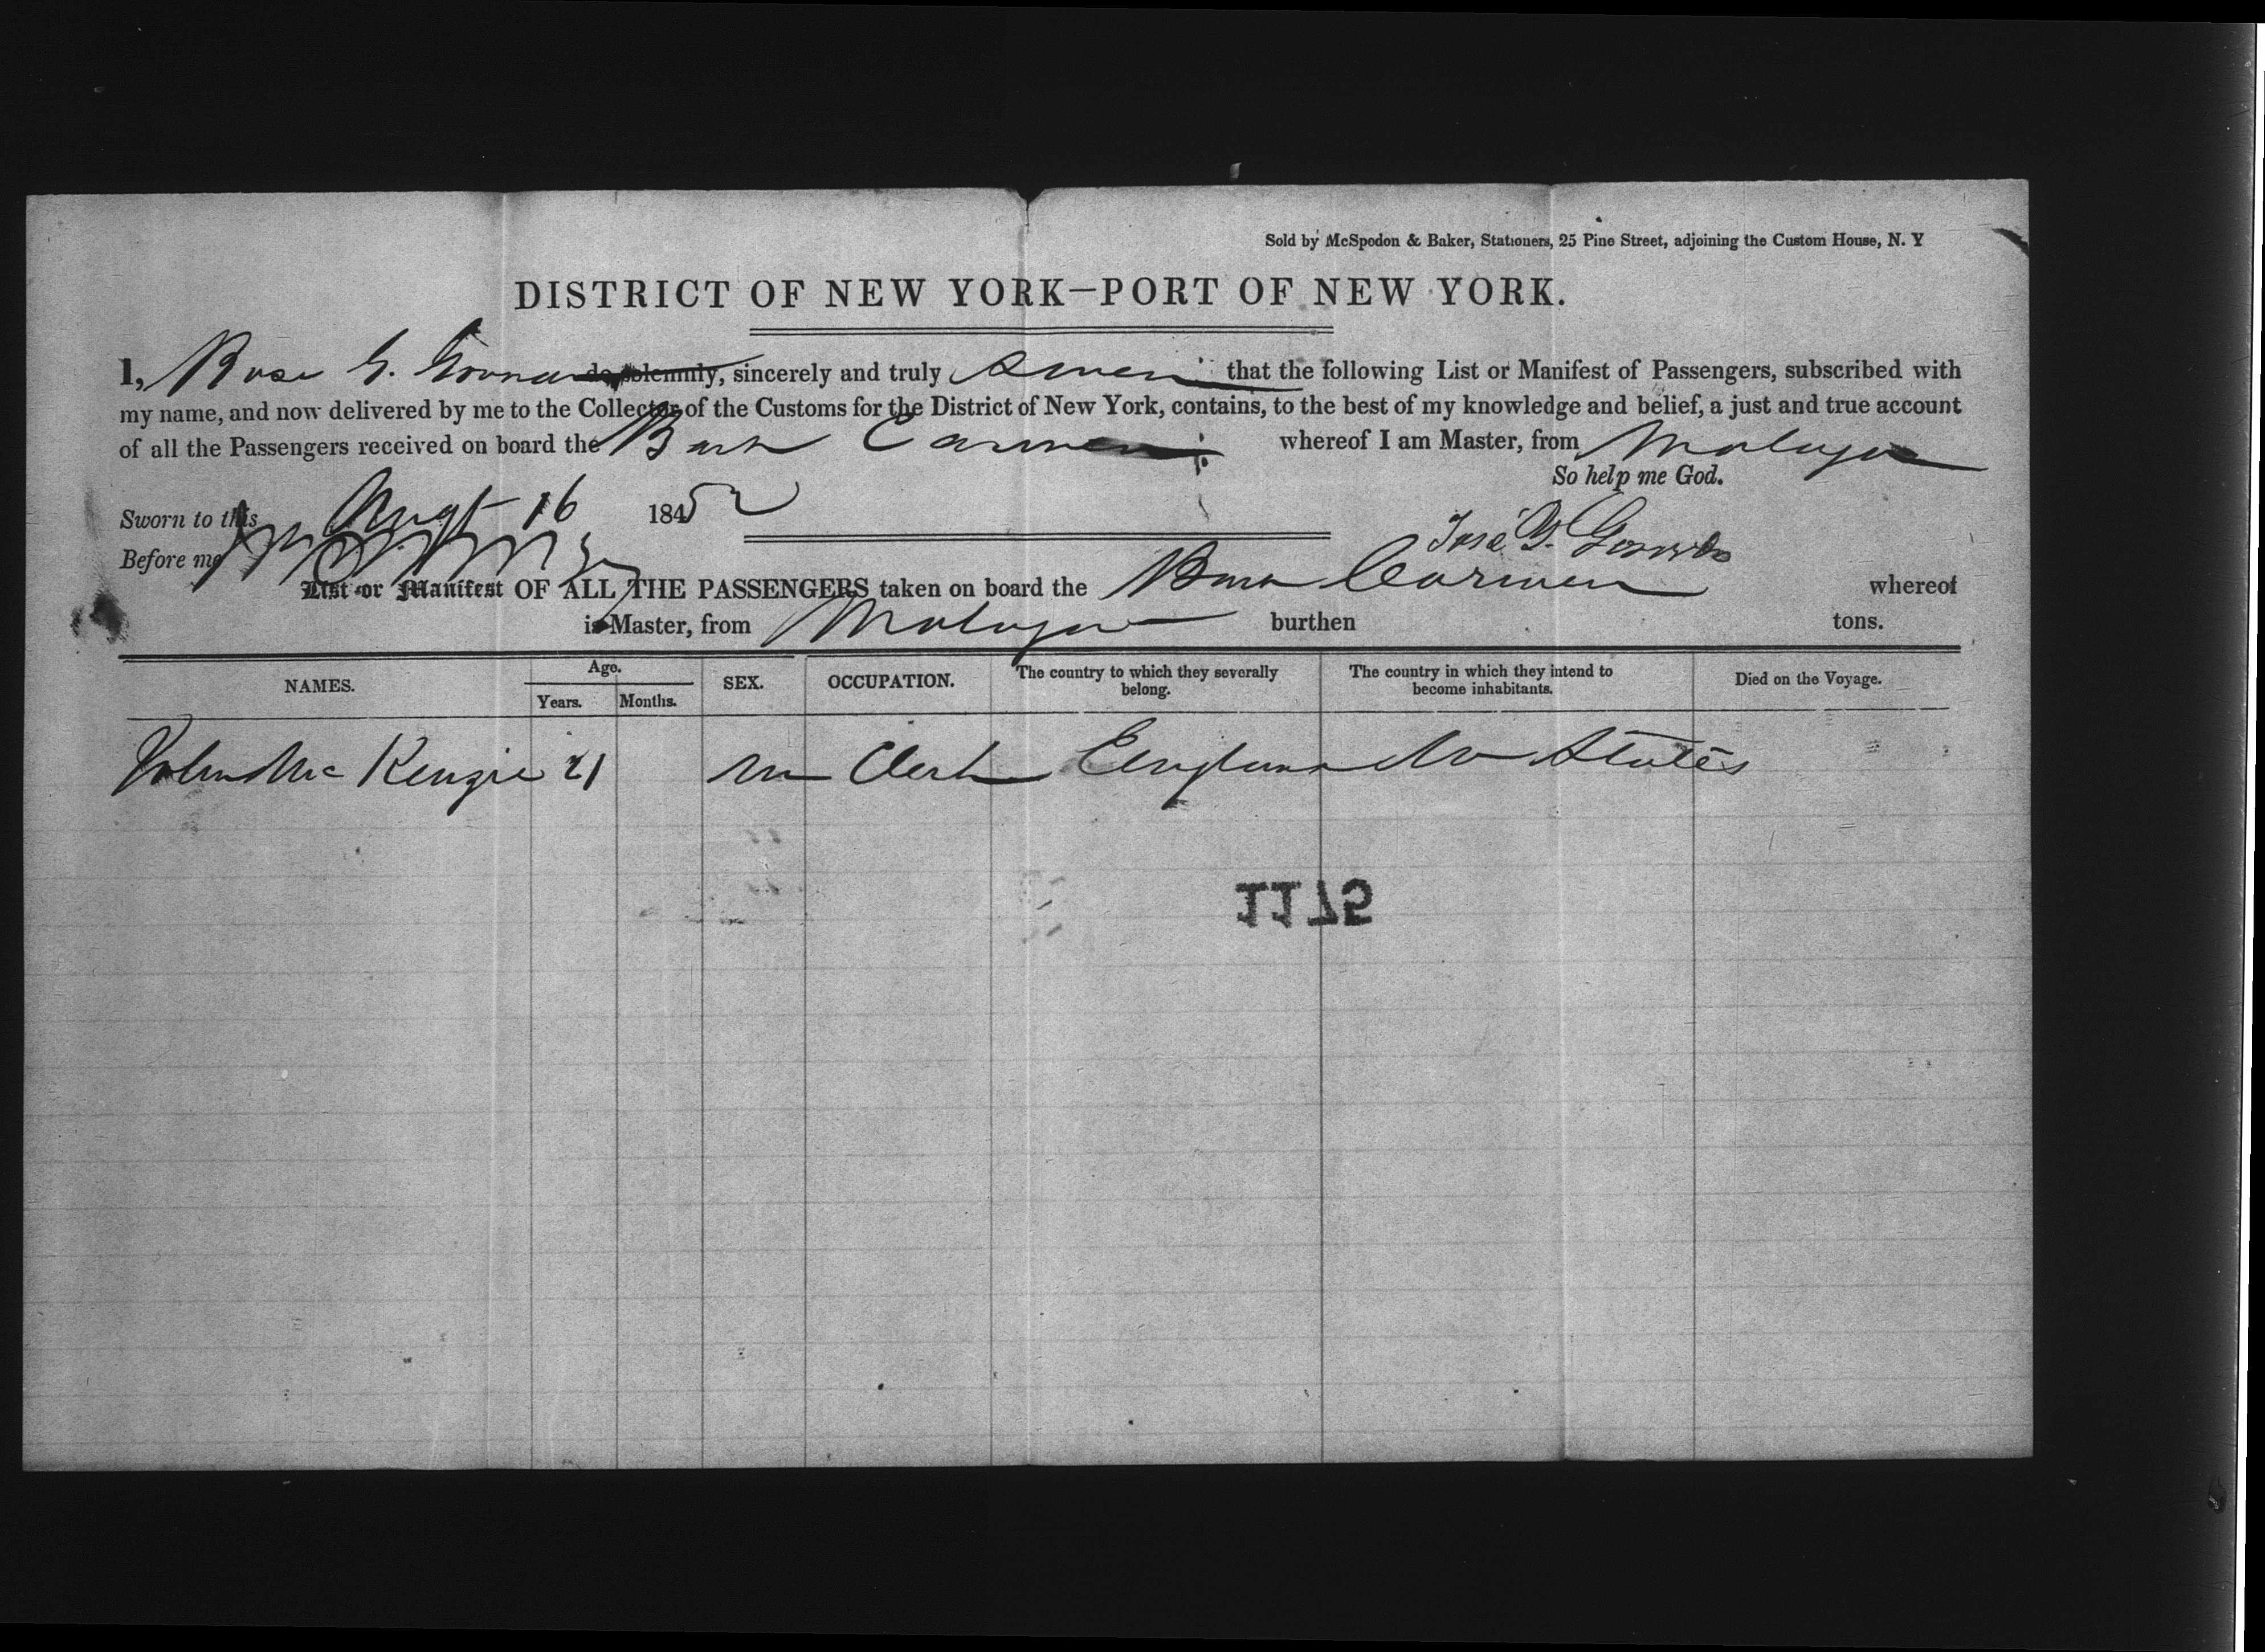 Sold by McSpedon & Baker, Stationers, 25 Pine Street, adjoining the Custom House, N. Y
DISTRICT OF NEW YORK—PORT OF NEW YORK.
I, G. do solemnly, sincerely and truly Swear that the following List or Manifest of Passengers, subscribed with
my name, and now delivered by me to the Collector of the Customs for the District of New York, contains, to the best of my knowledge and belief, a just and true account
of all the Passengers received on board the Bark Carmen whereof I am Master, from Malaga
So help me God.
Sworn to this Augt 16 1852
José G.
Before me
List or Manifest OF ALL THE PASSENGERS taken on board the Bark Carmen whereof
is Master, from Malaga burthen tons.
NAMES. Age. Years. Months. SEX. OCCUPATION. The country to which they severally belong. The country in which they intend to become inhabitants. Died on the Voyage.
John McKenzie 21 m Clerk England U States
1175